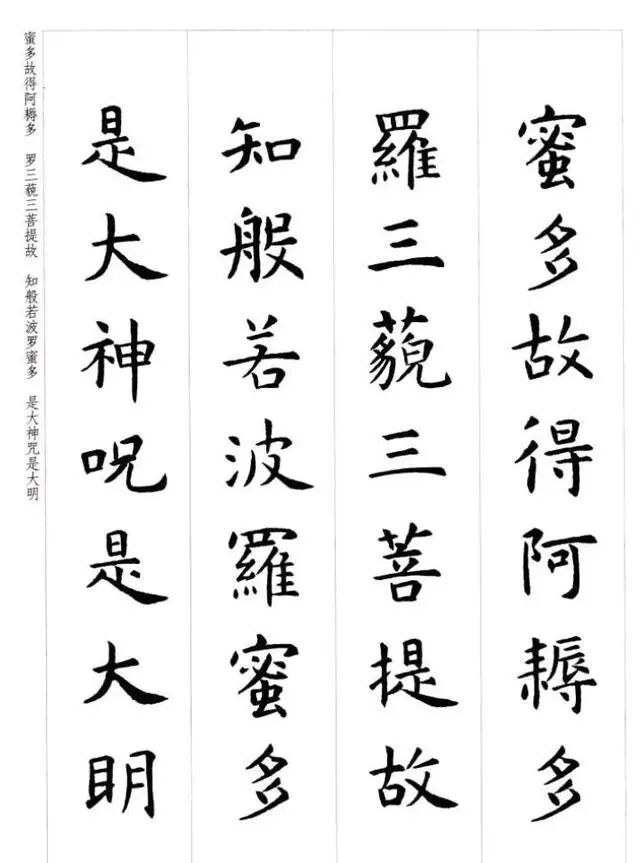 蜜多故得阿耨多
羅三藐三菩提故
知般若波羅蜜多
是大神呪是大明
蜜多故得阿耨多 罗三藐三菩提故 知般若波罗蜜多 是大神咒是大明